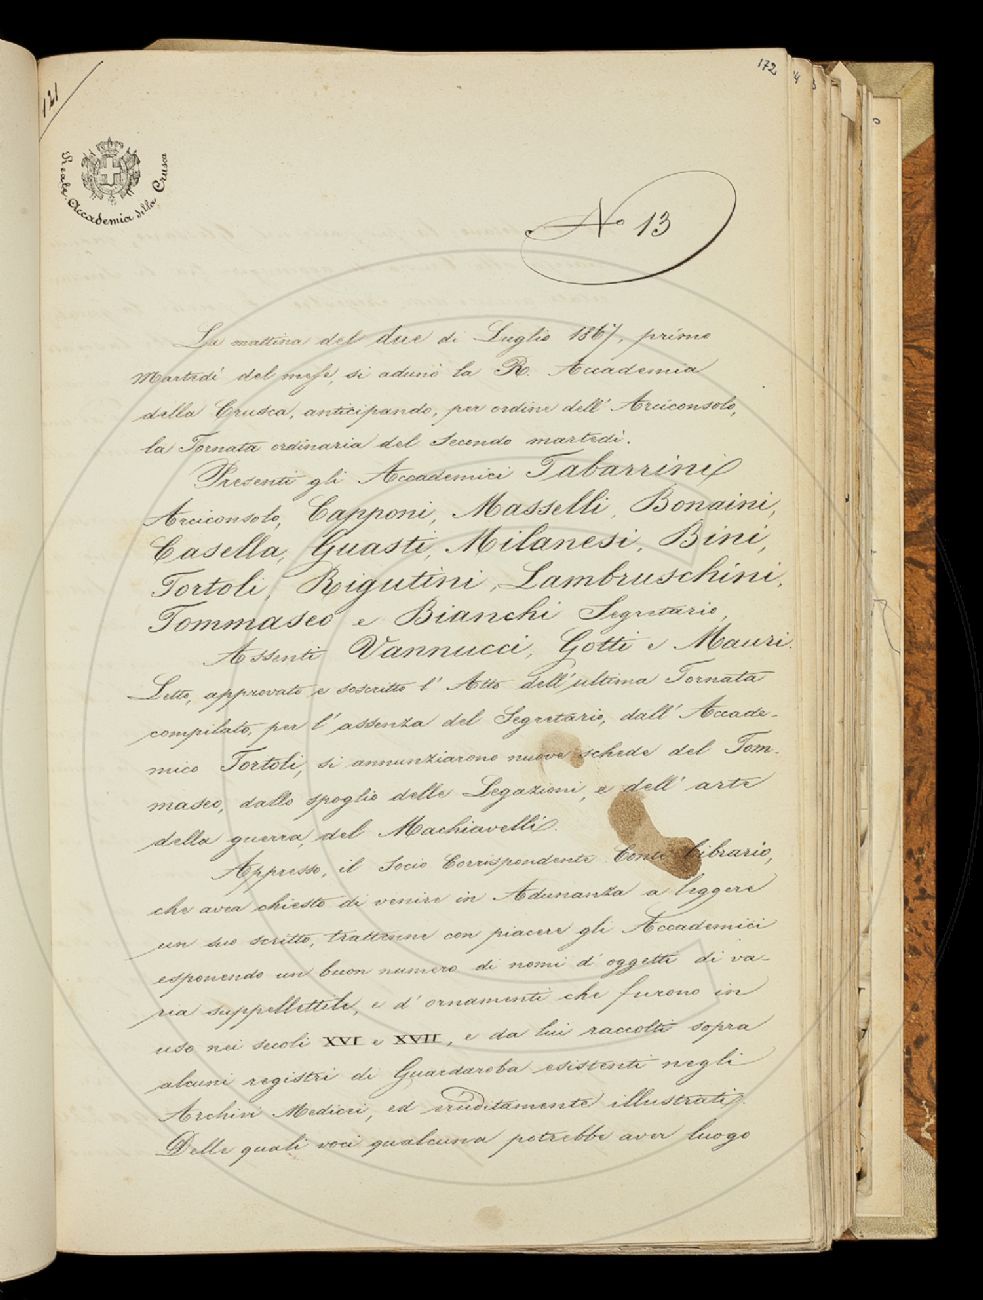 121
172
Reale Accademia della Crusca
No 13
La mattina del due di Luglio 1867, primo
Martedì del mese, si adunò la R. Accademia
della Crusca, anticipando, per ordine dell' Arciconsolo,
la Tornata ordinaria del secondo martedì.
Presenti gli Accademici Tabarrini
Arciconsolo, Capponi, Masselli, Bonaini,
Casella, Guasti, Milanesi, Bini,
Tortoli, Rigutini, Lambruschini,
Tommaseo e Bianchi Segretario,
Assenti Vannucci, Gotti e Mauri.
Letto, approvato e soscritto l' Atto dell' ultima Tornata
compilato, per l' assenza del Segretario, dall' Accade-
mico Tortoli, si annunziarono nuove schede del Tom-
maseo, dallo spoglio delle Legazioni, e dell' arte
della guerra, del Machiavelli.
Appresso, il Socio Corrispondente Conte Cibrario,
che avea chiesto di venire in Adunanza a leggere
un suo scritto, trattenne con piacere gli Accademici
esponendo un buon numero di nomi d' oggetti di va-
ria suppellettile, e d' ornamenti che furono in
uso nei secoli XVI e XVII, e da lui raccolti sopra
alcuni registri di Guardaroba esistenti negli
Archivi Medicei, ed eruditamente illustrati.
Delle quali voci qualcuna potrebbe aver luogo